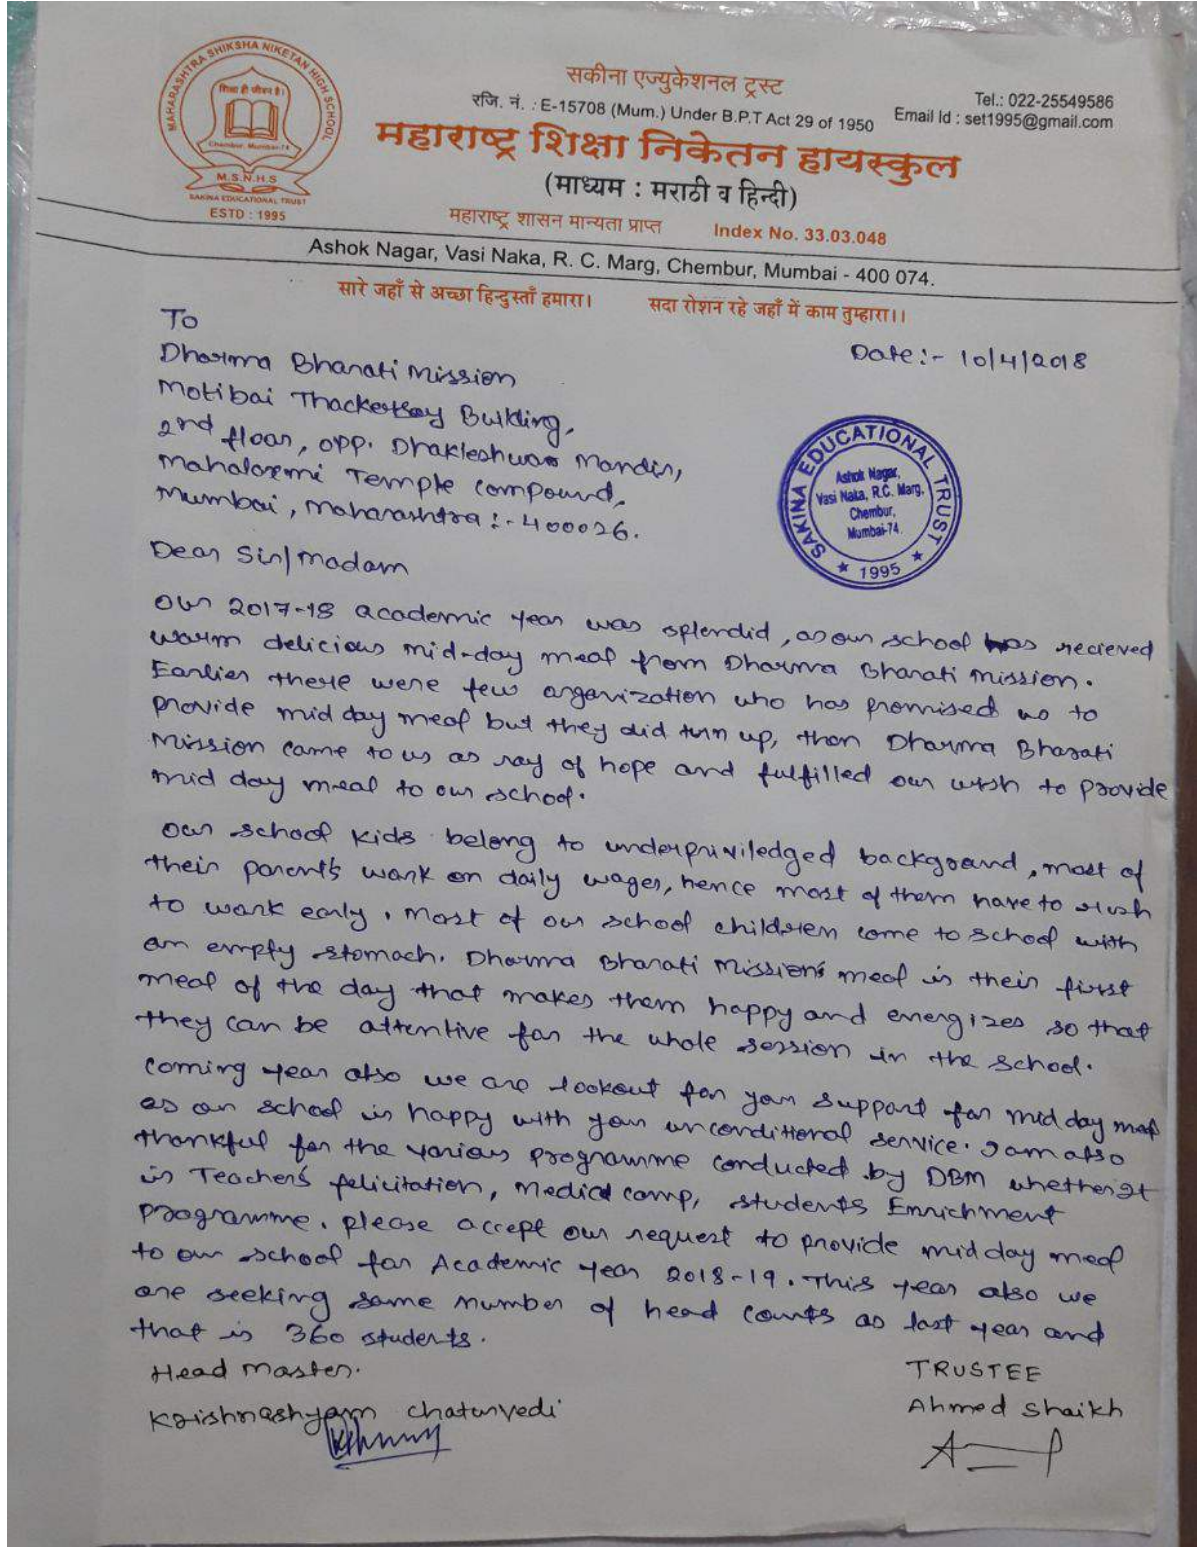 MAHARASHTRA SHIKSHA NIKETAN HIGH SCHOOL
शिक्षा ही जीवन है।
Chembur, Mumbai-74
M.S.N.H.S
SAKINA EDUCATIONAL TRUST
ESTD : 1995
सकीना एज्युकेशनल ट्रस्ट
रजि. नं. : E-15708 (Mum.) Under B.P.T Act 29 of 1950
Tel.: 022-25549586
Email Id : set1995@gmail.com
महाराष्ट्र शिक्षा निकेतन हायस्कुल
(माध्यम : मराठी व हिन्दी)
महाराष्ट्र शासन मान्यता प्राप्त Index No. 33.03.048
Ashok Nagar, Vasi Naka, R. C. Marg, Chembur, Mumbai - 400 074.
सारे जहाँ से अच्छा हिन्दुस्ताँ हमारा। सदा रोशन रहे जहाँ में काम तुम्हारा।।
To
Date:- 10/4/2018
Dharma Bharati Mission
Motibai Thackersey Building,
2nd floor, opp. Dhakleshwar Mandir,
Mahalaxmi Temple compound,
Mumbai, Maharashtra :- 400026.
SAKINA EDUCATIONAL TRUST
Ashok Nagar,
Vasi Naka, R.C. Marg,
Chembur,
Mumbai-74.
★ 1995 ★
Dear Sir/madam
Our 2017-18 academic year was splendid, as our school has recieved
warm delicious mid-day meal from Dharma Bharati Mission.
Earlier there were few organization who has promised us to
provide mid day meal but they did turn up, then Dharma Bharati
Mission came to us as ray of hope and fulfilled our wish to provide
mid day meal to our school.
Our school kids belong to underpriviledged background, most of
their parent's work on daily wages, hence most of them have to rush
to work early. Most of our school children come to school with
an empty stomach. Dharma Bharati Mission's meal is their first
meal of the day that makes them happy and energizes so that
they can be attentive for the whole session in the school.
Coming year also we are lookout for your support for mid day meal
as our school is happy with your unconditional service. I am also
thankful for the various programme conducted by DBM whether it
is Teacher's felicitation, Medical camp, students Enrichment
programme. please accept our request to provide mid day meal
to our school for Academic year 2018-19. This year also we
are seeking same number of head counts as last year and
that is 360 students.
Head Master.
Krishnashyam Chaturvedi
TRUSTEE
Ahmed Shaikh